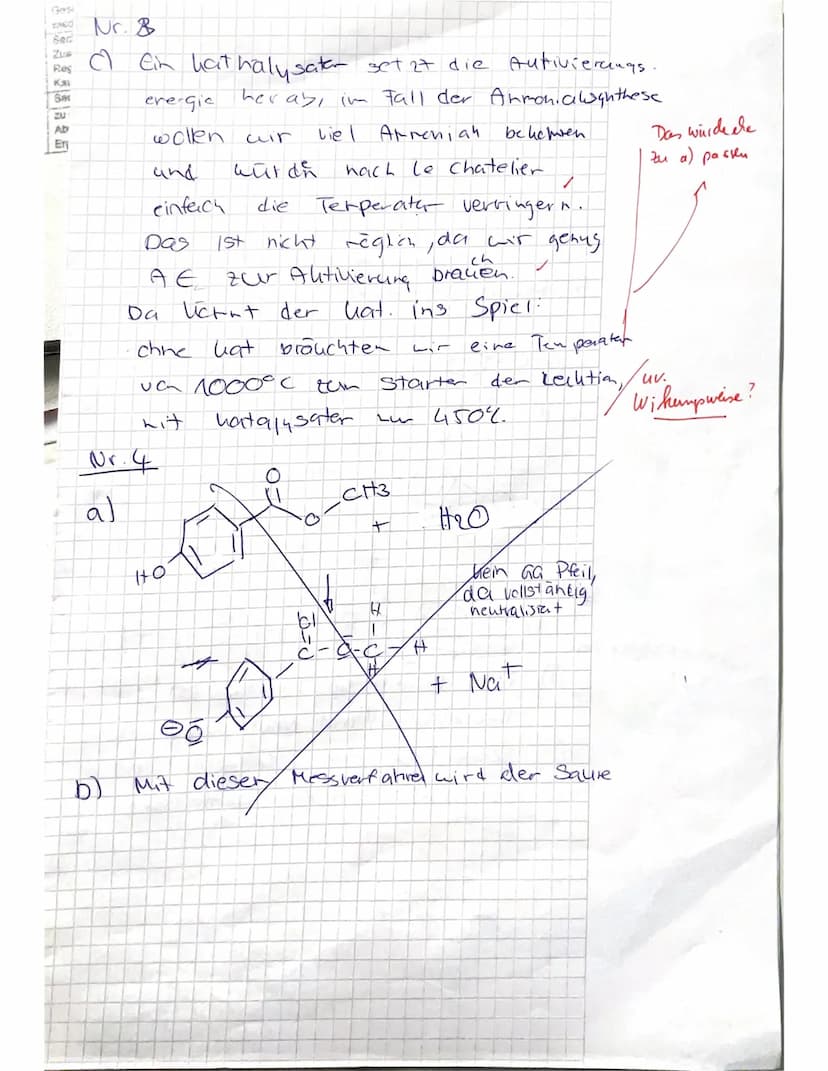 Nr. 8
c) Ein Kathalysator setzt die Aktivierungs-
energie herab, im Fall der Ammoniaksynthese
wollen wir viel Ammoniak bekommen
und würden nach le Chatelier
einfach die Temperatur verringern.
Das ist nicht möglich, da wir genug
AE zur Aktivierung brauchen.
Da kommt der Kat. ins Spiel:
ohne Kat bräuchten wir eine Temperatur
von 1000°C zum Starten der Reaktion,
mit Katalysator nur 450°C.
Das würde eher
zu a) passen
uv.
Wirkungsweise?
Nr. 4
a)
O
O
CH3
+ H2O
HO
kein GG Pfeil,
da vollständig
neutralisiert
H
C-O-C-H
H
+ Na+
⊖O
b) Mit diesem Messverfahren wird der Säure
Ges
Zus
Res
Kar
Zu
Ab